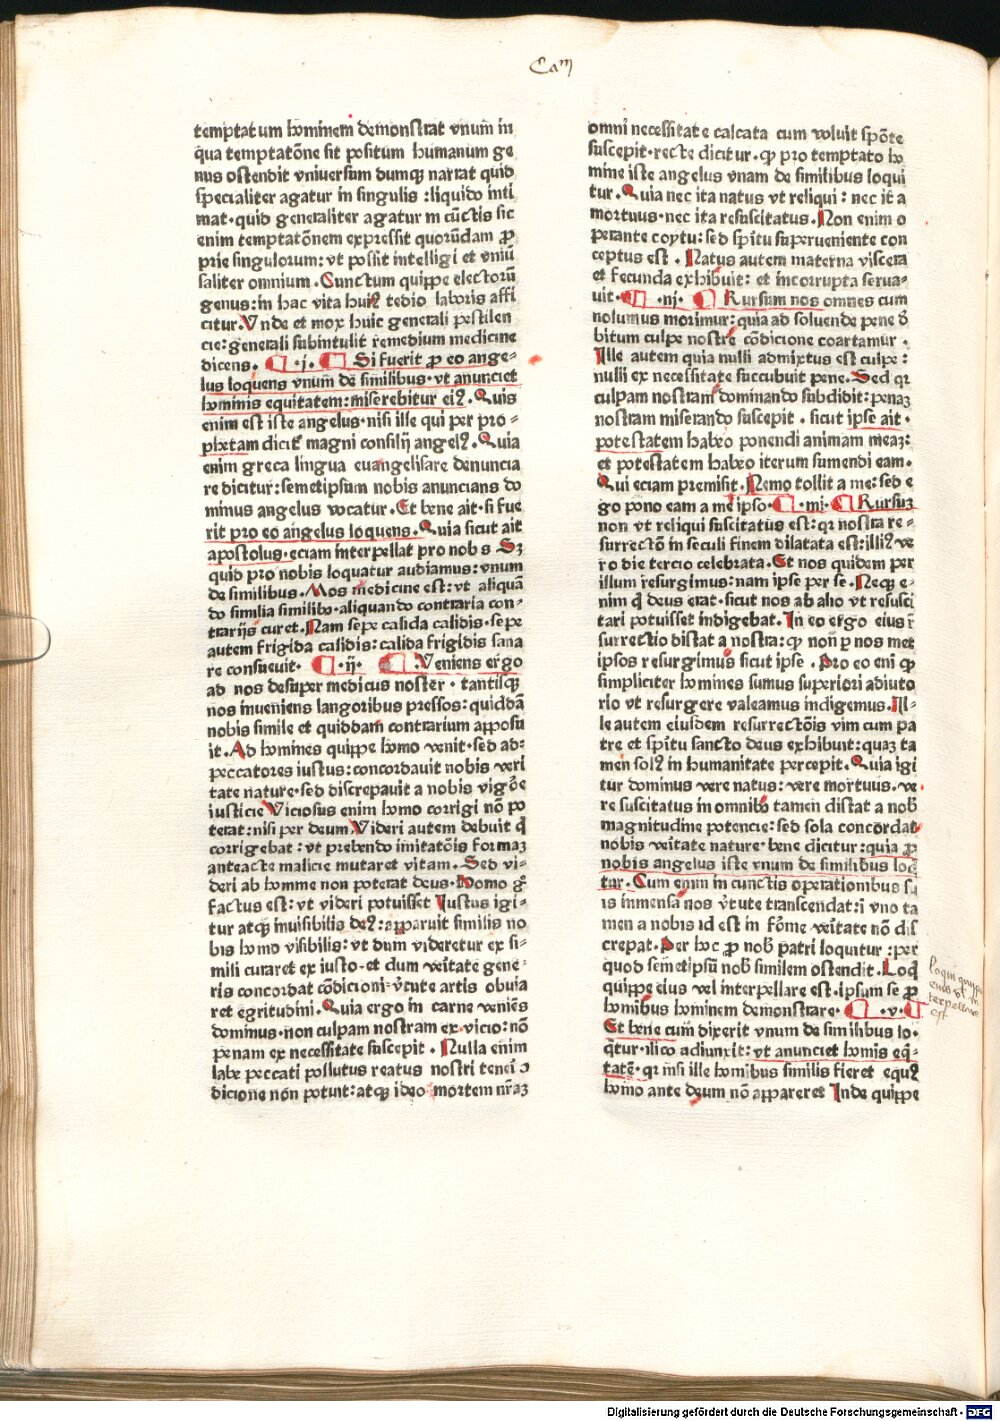 Cam
temptatum hominem demonstrat vnum in
qua temptatōne sit positum humanum ge
nus ostendit vniuersum dumqꝫ narrat quid
specialiter agatur in singulis :liquido inti
mat·quid generaliter agatur in cūctis sic
enim temptatōnem expressit quorūdam ꝓ
prie singulorum: vt possit intelligi et vniū
saliter omnium .Cunctum quippe electorū
genus:in hac vita huiꝰ tedio laboris affi
citur.Vnde et mox huic generali pestilen
cie:generali subintulit remedium medicine
dicens. ·j. Si fuerit ꝓ eo ange-
lus loquens vnum de similibus·vt anunciet
hominis equitatem:miserebitur eiꝰ.Quis
enim est iste angelus·nisi ille qui per pro-
phetam dicitꝰ magni consilij angelꝰ.Quia
enim greca lingua euangelisare denuncia
re dicitur:semetipsum nobis anuncians do
minus angelus vocatur.Et bene ait·si fue
rit pro eo angelus loquens.Quia sicut ait
apostolus·eciam interpellat pro nobis Sꝫ
quid pro nobis loquatur audiamus:vnum
de similibus.Mos medicine est:vt aliquā
do similia similibꝰ·aliquando contraria con-
trarijs curet.Nam sepe calida calidis·sepe
autem frigida calidis:calida frigidis sana
re consueuit· ·ij· Veniens ergo
ad nos desuper medicus noster·tantisqꝫ
nos inueniens langoribus pressos:quiddā
nobis simile et quiddam contrarium apposu
it.Ad homines quippe homo venit·sed ad:
peccatores iustus:concordauit nobis veri
tate nature·sed discrepauit a nobis vigōe
iusticie Viciosus enim homo corrigi nō po
terat:nisi per deum.Videri autem debuit q̄
corrigebat:vt prebendo imitatōis formaꝫ
anteacte malicie mutaret vitam.Sed vi-
deri ab homine non poterat deus.Homo gͦ
factus est:vt videri potuisset Iustus igi-
tur atqꝫ inuisibilis deꝰ:apparuit similis no
bis homo visibilis:vt dum videretur ex si-
mili curaret ex iusto·et dum veītate gene-
ris concordat cōdicioni·v̄tute artis obuia
ret egritudini.Quia ergo in carne veniēs
dominus·non culpam nostram ex·vicio:nō
penam ex necessitate suscepit . Nulla enim
labe peccati pollutus reatus nostri teneri ↄ
dicione non potuit:atqꝫ ideo mortem nr̄aꝫ
omni necessitate calcata cum voluit spōte
suscepit·recte dicitur.qꝫ pro temptato ho
mine iste angelus vnam de similibus loqui
tur.Quia nec ita natus vt reliqui: nec ita
mortuus·nec ita resuscitatus.Non enim o
perante coytu:sed spītu superueniente con
ceptus est . Natus autem materna viscera
et fecunda exhibuit: et incorrupta serua-
uit· ·iij. Rursum nos omnes cum
nolumus morimur:quia ad soluende pene d̄
bitum culpe nostre cōdicione coartamur .
Ille autem quia nulli admixtus est culpe:
nulli ex necessitate succubuit pene.Sed qꝛ
culpam nostram dominando subdidit:penaꝫ
nostram miserando suscepit . sicut ipse ait .
potestatem habeo ponendi animam meaꝫ:
et potestatem habeo iterum sumendi eam.
Qui eciam premisit.Nemo tollit a me:sed e
go pono eam a me ipso· ·iiij· Rursuꝫ
non vt reliqui suscitatus est:qꝛ nostra re-
surrectō in seculi finem dilatata est:illiꝰ ve
ro die tercio celebrata.Et nos quidem per
illum resurgimus:nam ipse per se.Neqꝫ e-
nim q̄ deus erat·sicut nos ab alio vt resusci
tari potuisset indigebat.In eo ergo eius r̄
surrectio distat a nostra:qꝫ non ꝑ nos met
ipsos resurgimus sicut ipse .Pro eo enī qꝫ
simpliciter homines sumus superiori adiuto
rio vt resurgere valeamus indigemus.Il-
le autem eiusdem resurrectōis vim cum pa
tre et spītu sancto deus exhibuit:quaꝫ ta
men solꝰ in humanitate percepit.Quia igi
tur dominus vere natus:vere mortuus·ve
re suscitatus in omnibꝰ tamen distat a nobꝭ
magnitudine potencie:sed sola concordat
nobis veitate nature·bene dicitur:quia ꝓ
nobis angelus iste vnum de similibus loq̄
tur.Cum enim in cunctis operationibus su
is inmensa nos v̄tute transcendat:ī vno ta
men a nobis id est in fōme veītate nō dis
crepat.Per hoc ꝓ nobꝭ patri loquitur :per
quod semetipsū nobꝭ similem ostendit.Loq̄
quippe eius vel interpellare est·ipsum se ꝓ
homībus hominem demonstrare· ·v·
Et bene cum dixerit vnum de similibus lo-
q̄tur·ilico adiunxit:vt anunciet homīs eq̄-
tatē·qꝛ nisi ille homībus similis fieret equꝰ
homo ante deum nō appareret Inde quippe
loqui quippe
eius vt in
terpellare
est
Digitalisierung gefördert durch die Deutsche Forschungsgemeinschaft - DFG